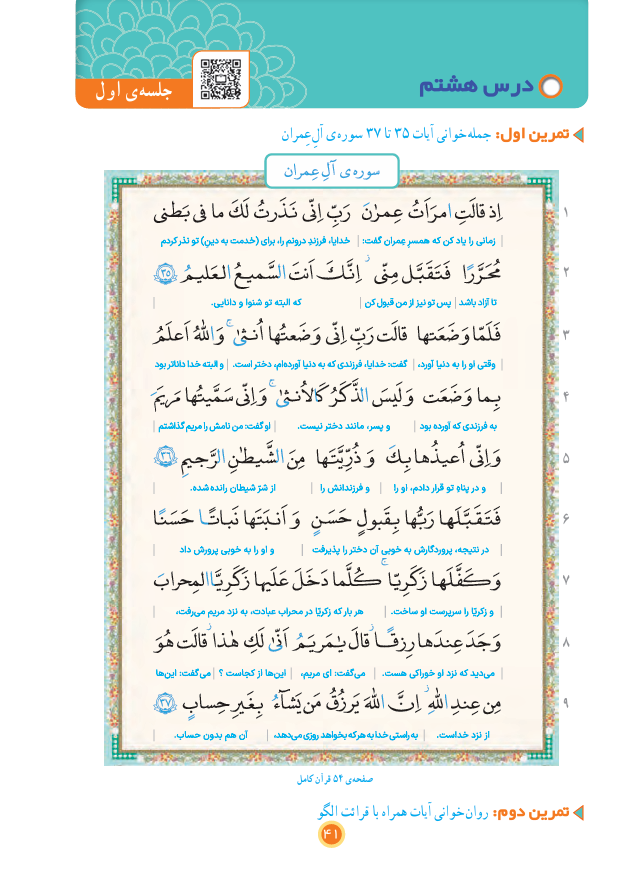 درس هشتم
جلسه‌ی اول
تمرین اول: جمله‌خوانی آیات ۳۵ تا ۳۷ سوره‌ی آل‌عِمران
سوره‌ی آلِ عِمران
۱ اِذ قالَتِ امرَاَتُ عِمرٰنَ رَبِّ اِنّی نَذَرتُ لَکَ ما فی بَطنی
زمانی را یاد کن که همسرِ عِمران گفت: | خدایا، فرزندِ درونم را، برای (خدمت به دینِ) تو نذر کردم
۲ مُحَرَّرًا فَتَقَبَّل مِنّی ۖ اِنَّکَ اَنتَ السَّمیعُ العَلیمُ ﴿۳۵﴾
تا آزاد باشد | پس تو نیز از من قبول کن | که البته تو شنوا و دانایی. |
۳ فَلَمّا وَضَعَتها قالَت رَبِّ اِنّی وَضَعتُها اُنثىٰ ۚ وَ اللّٰهُ اَعلَمُ
وقتی او را به دنیا آورد، | گفت: خدایا، فرزندی که به دنیا آورده‌ام، دختر است. | و البته خدا داناتر بود
۴ بِما وَضَعَت وَ لَیسَ الذَّکَرُ کَالاُنثىٰ ۚ وَ اِنّی سَمَّیتُها مَریَمَ
به فرزندی که آورده بود | و پسر، مانند دختر نیست. | او گفت: من نامش را مریم گذاشتم |
۵ وَ اِنّی اُعیذُها بِکَ وَ ذُرِّیَّتَها مِنَ الشَّیطٰنِ الرَّجیمِ ﴿۳۶﴾
| و در پناهِ تو قرار دادم، او را | و فرزندانش را | از شرّ شیطان رانده شده. |
۶ فَتَقَبَّلَها رَبُّها بِقَبولٍ حَسَنٍ وَ اَنبَتَها نَباتًا حَسَنًا
در نتیجه، پروردگارش به خوبی آن دختر را پذیرفت | و او را به خوبی پرورش داد |
۷ وَ کَفَّلَها زَکَرِیّا ۚ کُلَّما دَخَلَ عَلَیها زَکَرِیَّا المِحرابَ
| و زکریّا را سرپرست او ساخت. | هر بار که زکریّا در محراب عبادت، به نزد مریم می‌رفت، |
۸ وَجَدَ عِندَها رِزقًا ۖ قالَ یٰمَریَمُ اَنّىٰ لَکِ هٰذا ۖ قالَت هُوَ
| می‌دید که نزد او خوراکی هست. | می‌گفت: ای مریم، | این‌ها از کجاست ؟ | می‌گفت: این‌ها
۹ مِن عِندِ اللّٰهِ ۖ اِنَّ اللّٰهَ یَرزُقُ مَن یَشآءُ بِغَیرِ حِسابٍ ﴿۳۷﴾
از نزد خداست. | به راستی خدا به هر که بخواهد روزی می‌دهد، | آن هم بدون حساب. |
صفحه‌ی ۵۴ قرآن کامل
تمرین دوم: روان‌خوانی آیات همراه با قرائت الگو
۴۱